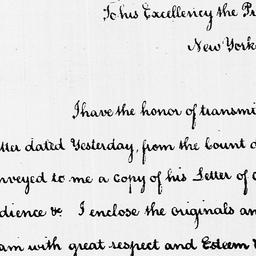 To his Excellency the Pr
New York
I have the honor of transmi
tter dated Yesterday, from the Count d
nveyed to me a Copy of his Letter of C
dience &c. I enclose the originals an
am with great respect and Esteem